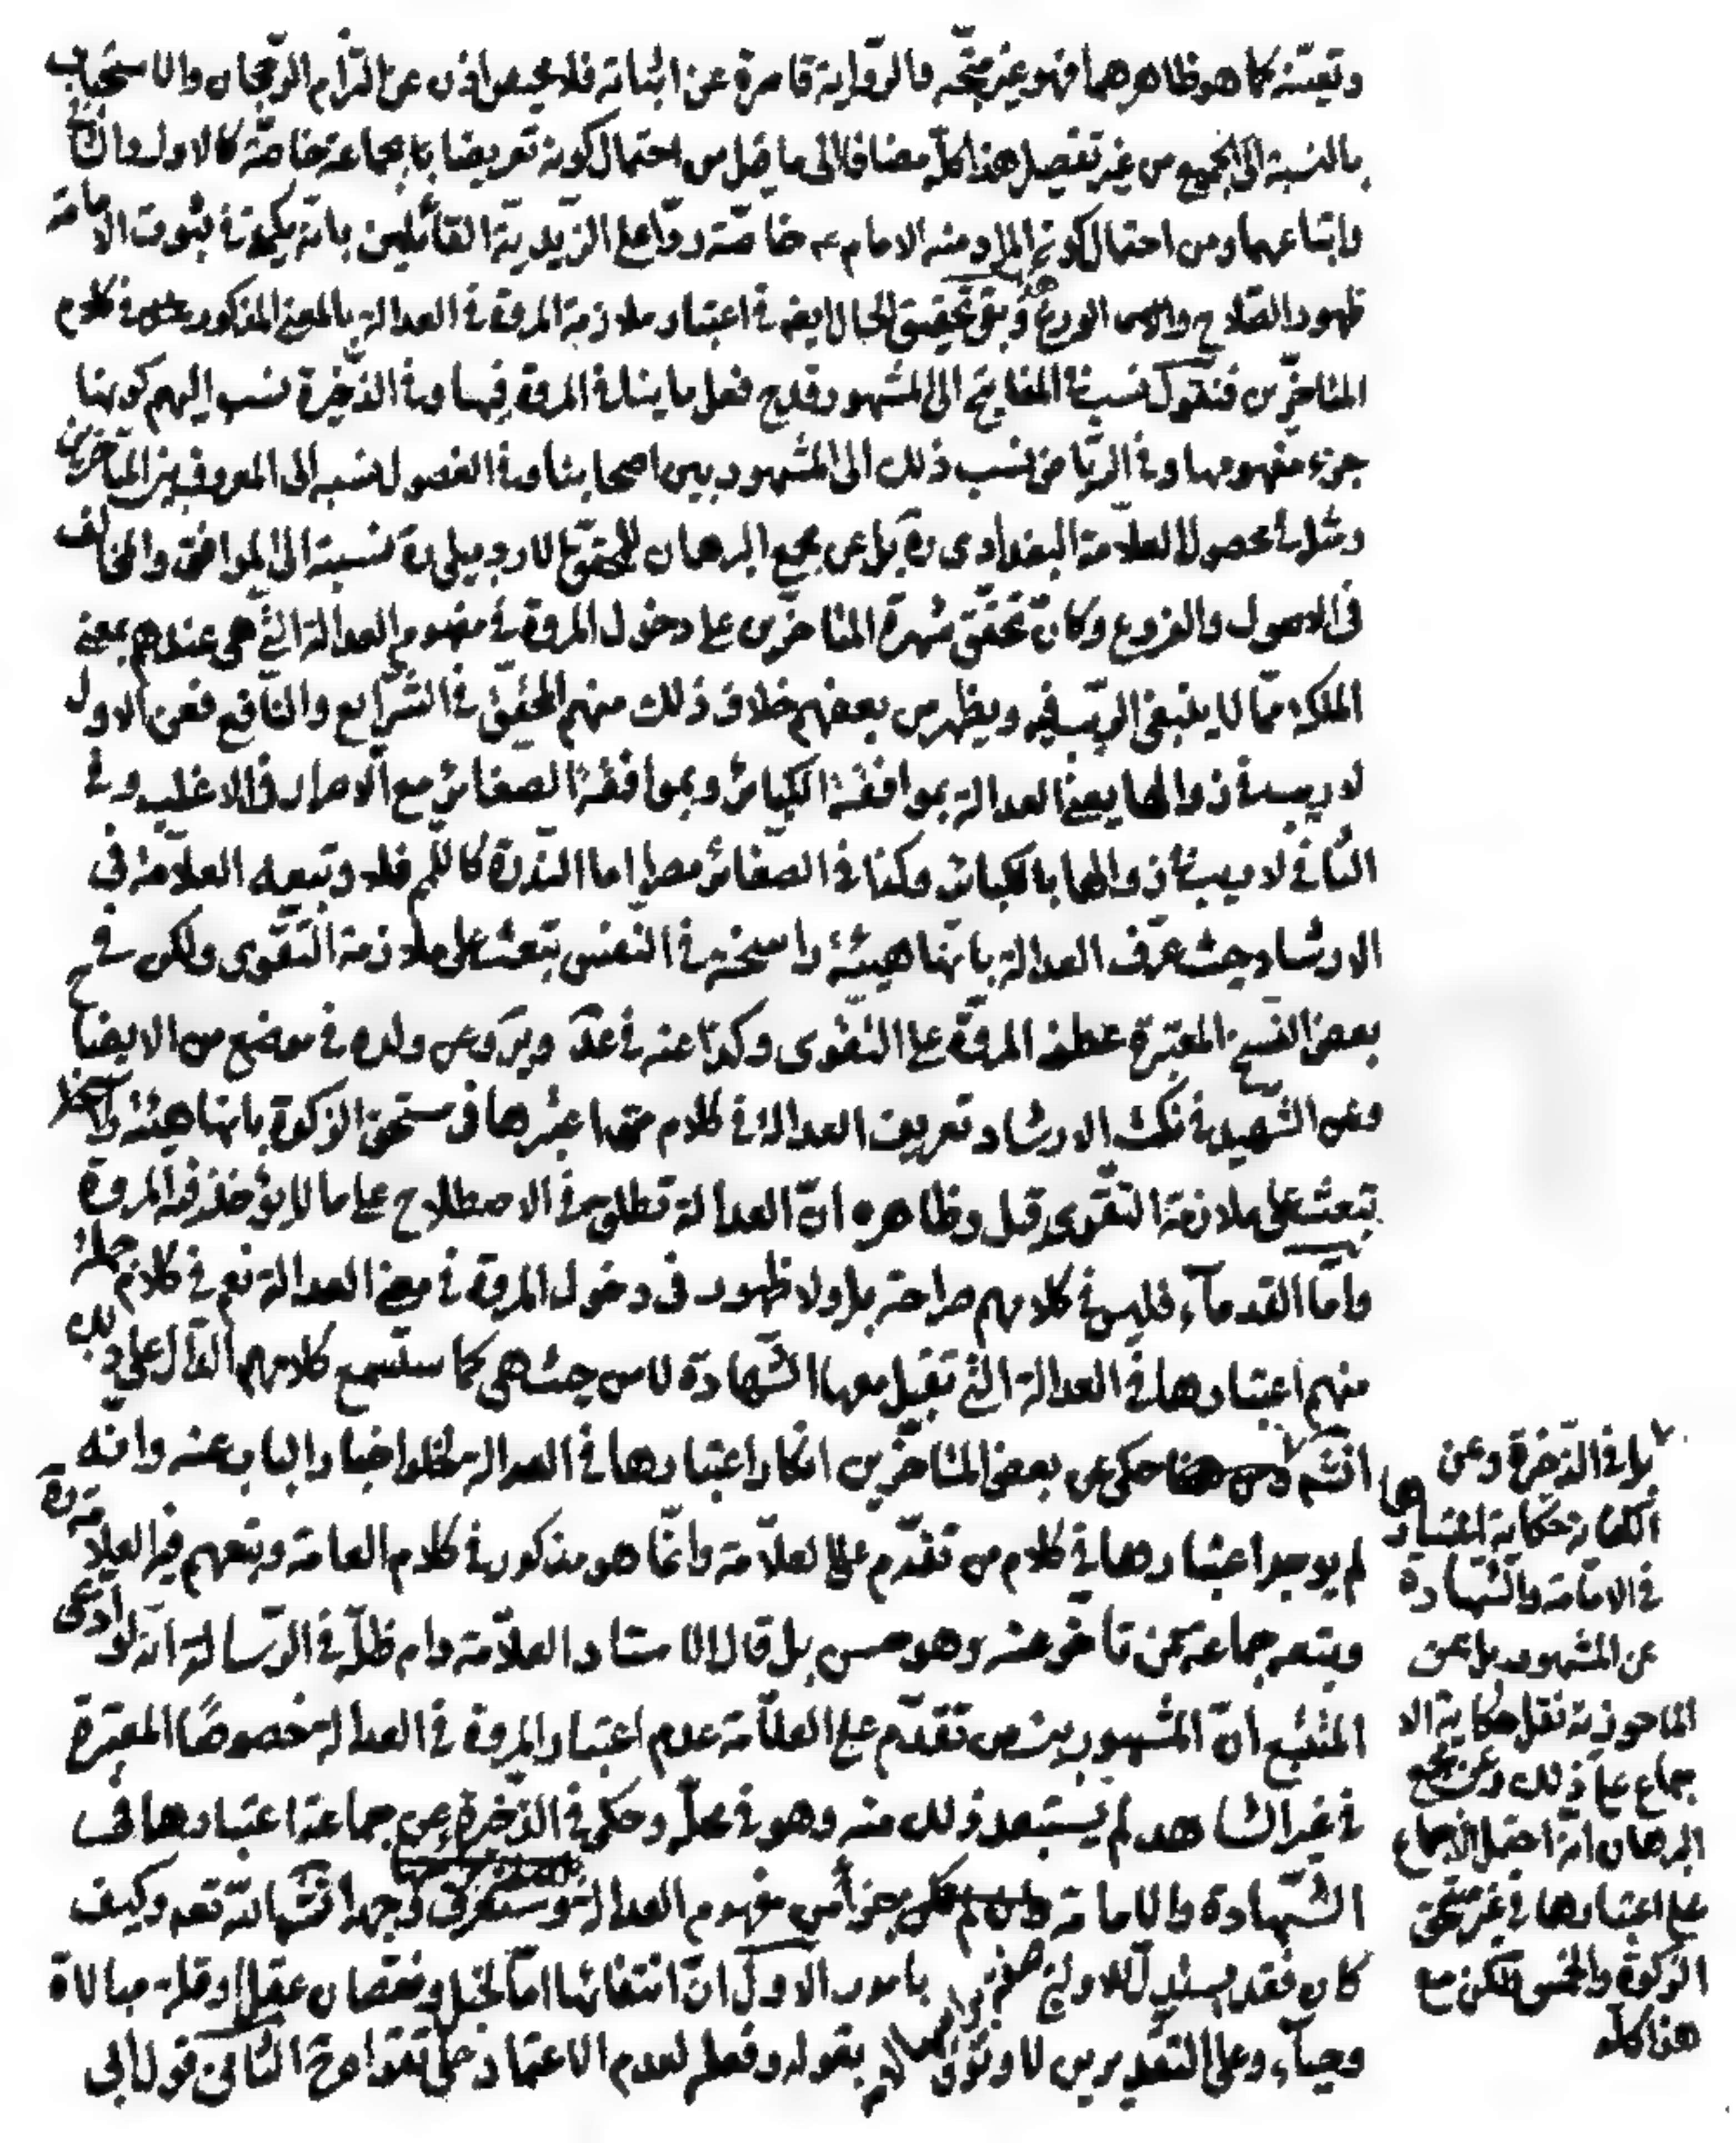 وتعيّنه كما هو ظاهرهما فهو غير متّجه فالرّواية قاصرة عن اثباته فلا محيص اذن عن التزام الرّجحان والاستحباب
بالنسبة الى الجميع من غير تفصيل هذا كلّه مضافا الى ما قيل من احتمال كونه تعريضا بالجماعة خاصّة كالاول والثاني
واتباعهما ومن احتمال كون المراد منه الامام عه خاصّة ردّا على الزّيديّة القائلين بانّه يكفي في ثبوت الامامة
ظهور الصّلاح والورع وبقى تحقيق الحال ايضا في اعتبار ملازمة المروة في العدالة بالمعنى المذكور في كلام
المتاخّرين فنقول نسب في المفاتيح الى المشهور قدح فعل ما ينافي المروة فيها وفي الذّخيرة نسب اليهم كونها
جزء مفهومها وفي الرّياض نسب ذلك الى المشهور بين اصحابنا وفي الفصول نسبه الى المعروف بين المتاخرين
ومثله في محصول العلاّمة البغدادى ره بل عن مجمع البرهان للمحقّق الاردبيلى ره نسبته الى الموافق والمخالف
فى الاصول والفروع وكانّ تحقّق شهرة المتاخّرين على دخول المروة في مفهوم العدالة الّتي هى عندهم بمعنى
الملكة ممّا لا ينبغى الرّيب فيه ويظهر من بعضهم خلاف ذلك منهم المحقّق في الشّرايع والنّافع فعن الاول
لا ريب في زوالها يعنى العدالة بمواقعة الكبائر وبمواقعة الصغائر مع الاصرار او فى الاغلب وفى
الثّانى لا ريب في زوالها بالكبائر وكذا في الصّغائر مصرا اما النّدرة كاللّمم فلا وتبعه العلاّمة فى
الارشاد حيث عرّف العدالة بانّها هيئة راسخة في النّفس تبعث على ملازمة التّقوى ولكن في
بعض النسخ المعتبرة عطف المروّة على التّقوى وكذا عنه في عدّ ويرَ وعن ولده في موضع من الايضاح
وعن الشّهيد في نكت الارشاد تعريف العدالة في كلام من اعتبرها فى مستحق الزكوة بانها هيئة راسخة
تبعث على ملازمة التّقوى قيل وظاهره انّ العدالة تطلق في الاصطلاح على ما لا يؤخذ فيه المروة
وامّا القدمآء فليس في كلامهم صراحة بل ولا ظهور فى دخول المروة في معنى العدالة نعم في كلام جملة
منهم اعتبارها في العدالة الّتي تقبل معها الشّهادة لا من حيث هى كما ستسمع كلامهم الدّال على ذلك
انشَم حكى عن بعض المتاخّرين انكار اعتبارها في العدالة لخلو اخبار الباب عنه وانّه
لم يوجد اعتبارها في كلام من تقدّم على العلاّمة وانّما هو مذكور في كلام العامة وتبعهم فيه العلاّمة ره
وتبعه جماعة ممّن تاخّر عنه وهو حسن بل قال الاستاد العلاّمة دام ظلّه في الرّسالة انّه لو ادّعى
المتتبع انّ المشهور بين من تقدّم على العلاّمة عدم اعتبار المروة في العدالة خصوصًا المعتبرة
في غير الشاهد لم يستبعد ذلك منه وهو في محلّه وحكى في الذّخيرة عن جماعة اعتبارها فى
الشّهادة والامامة جزأ من مفهوم العدالة وستعرف وجه انشاء اللّه تعه وكيف
كان فقد يستدلّ للاول بامور الاوّل انّ انتفائها امّا لخبل او نقصان عقل او قلة مبالاة
وحيآء وعلى التّقديرين لا وثوق بقوله وفعله لعدم الاعتماد على تقواه ح الثّانى قول ابى
بل في الذّخيرة وعن
الكفاية حكاية اعتبارها
في الامامة والشّهادة
عن المشهور بل عن
الماحوذية نقل حكاية الا
جماع على ذلك وعن مجمع
البرهان انّه احتمل الاجماع
على اعتبارها في غير مستحق
الزكوة والخمس لكن مع
هذا كلّه